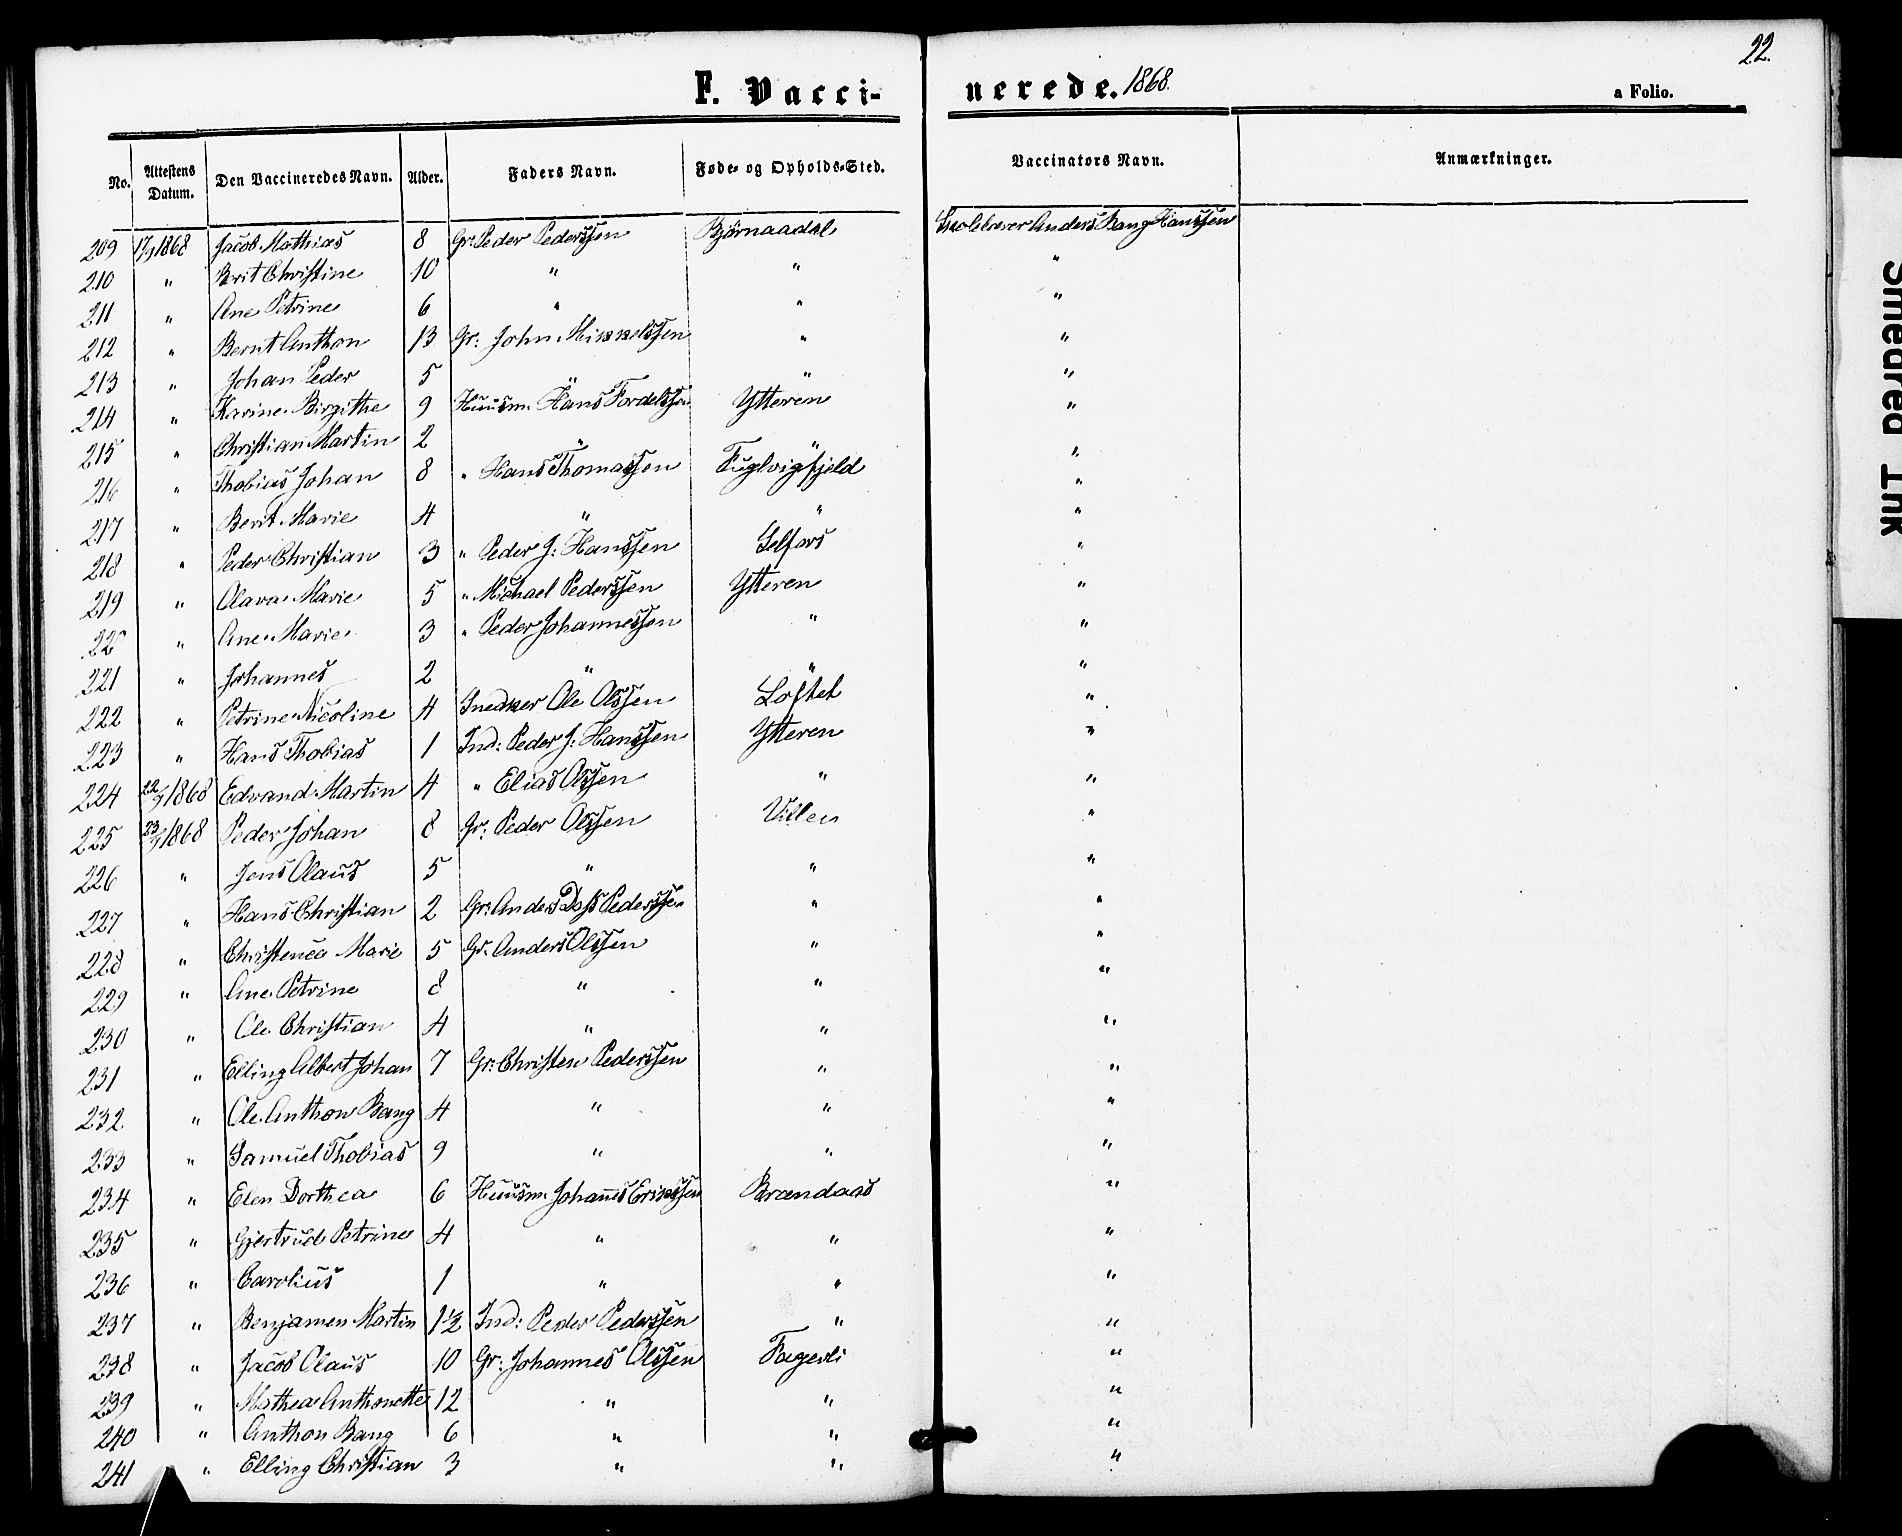 22.
F. Vacci- nerede. 1868.
a Folio.
No. Attestens Datum. Den Vaccineredes Navn. Alder. Faders Navn. Føde- og Opholds-Sted. Vaccinators Navn. Anmærkninger.
209 17/7 1868 Jacob Mathias 8 Gr: Peder Pederssen Bjørnaadal Skolelærer Anders Bang Hanssen
210 " Berit Christine 10 " " "
211 " Ane Petrine 6 " " "
212 " Bernt Anthon 13 Gr: John Mikkelssen " "
213 " Johan Peder 5 " " "
214 " Karine Birgithe 9 Huusm. Hans Fordelssen Ytteren "
215 " Christian Martin 2 " " "
216 " Thobias Johan 8 " Hans Thomassen Fuglvigfjeld "
217 " Berit Marie 4 " " "
218 " Peder Christian 3 " Peder J: Hanssen Selfors "
219 " Olava Marie 5 " Michael Pederssen Ytteren "
22 " Ane Marie 3 " Peder Johannessen " "
221 " Johannes 2 " " "
222 " Petrine Nicoline 4 Snedker Ole Olssen Loftet "
223 " Hans Thobias 1 Ind: Peder J: Hanssen Ytteren "
224 22/7 1868 Edvand Martin 4 " Elias Olssen " "
225 23/7 1868 Peder Johan 8 Gr: Peder Olssen "
226 " Jens Olaus 5 " " "
227 " Hans Christian 2 Gr: Anders Dass Pederssen " "
228 " Christence Marie 5 Gr. Anders Olssen " "
229 " Ane Petrine 8 " " "
230 " Ole Christian 4 " " "
231 " Elling Albert Johan 7 Gr: Christen Pederssen " "
232. " Ole Anthon Bang 4 " " "
233 " Samuel Thobias 9 " " "
234 " Elen Dorthea 6 Huusm. Johannes Erikssen Brændaas "
235 " Gjertrud Petrine 4 " " "
236 " Carolius 1 " " "
237 " Benjamen Martin 1 1/2 Ind: Peder Pederssen " "
238 " Jacob Olaus 10 Gr: Johannes Olssen Fagerli "
239 " Mathea Anthonette 12 " " "
240 " Anthon Bang 6 " " "
241 " Elling Christian 3 " " "
Smeared Ink